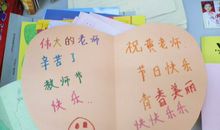 伟大的老师
辛苦了
教师节
快乐...
祝黄老师
节日快乐
青春美丽
快快乐乐